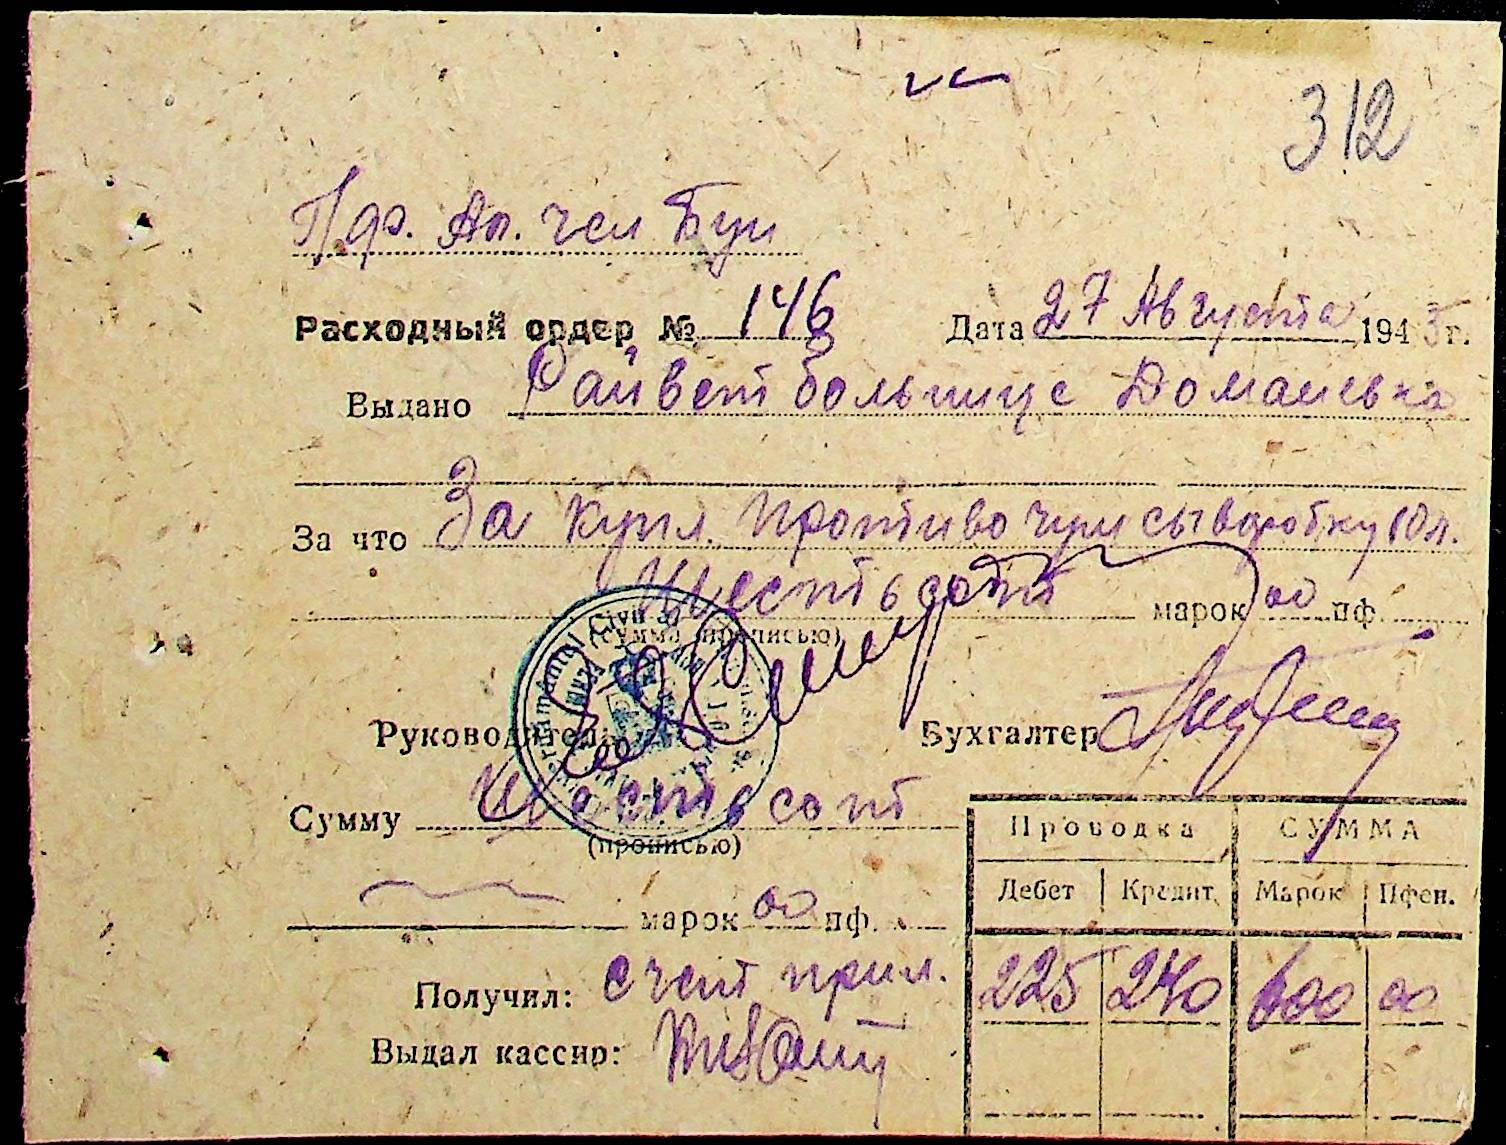 312
Пдф. Ап. чел Буг
Расходный ордер № 146 Дата 27 Августа 1943 г.
Выдано Райветбольнице Доманевка
За что За купл. противо чум сыворотку 10 л.
Шестьсот марок 00 пф.
(сумма прописью)
Руководитель Бухгалтер
Сумму Шестьсот
(прописью)
марок 00 пф.
Получил: счет прил.
Выдал кассир:
Проводка СУММА
Дебет Кредит Марок Пфен.
225 240 600 00